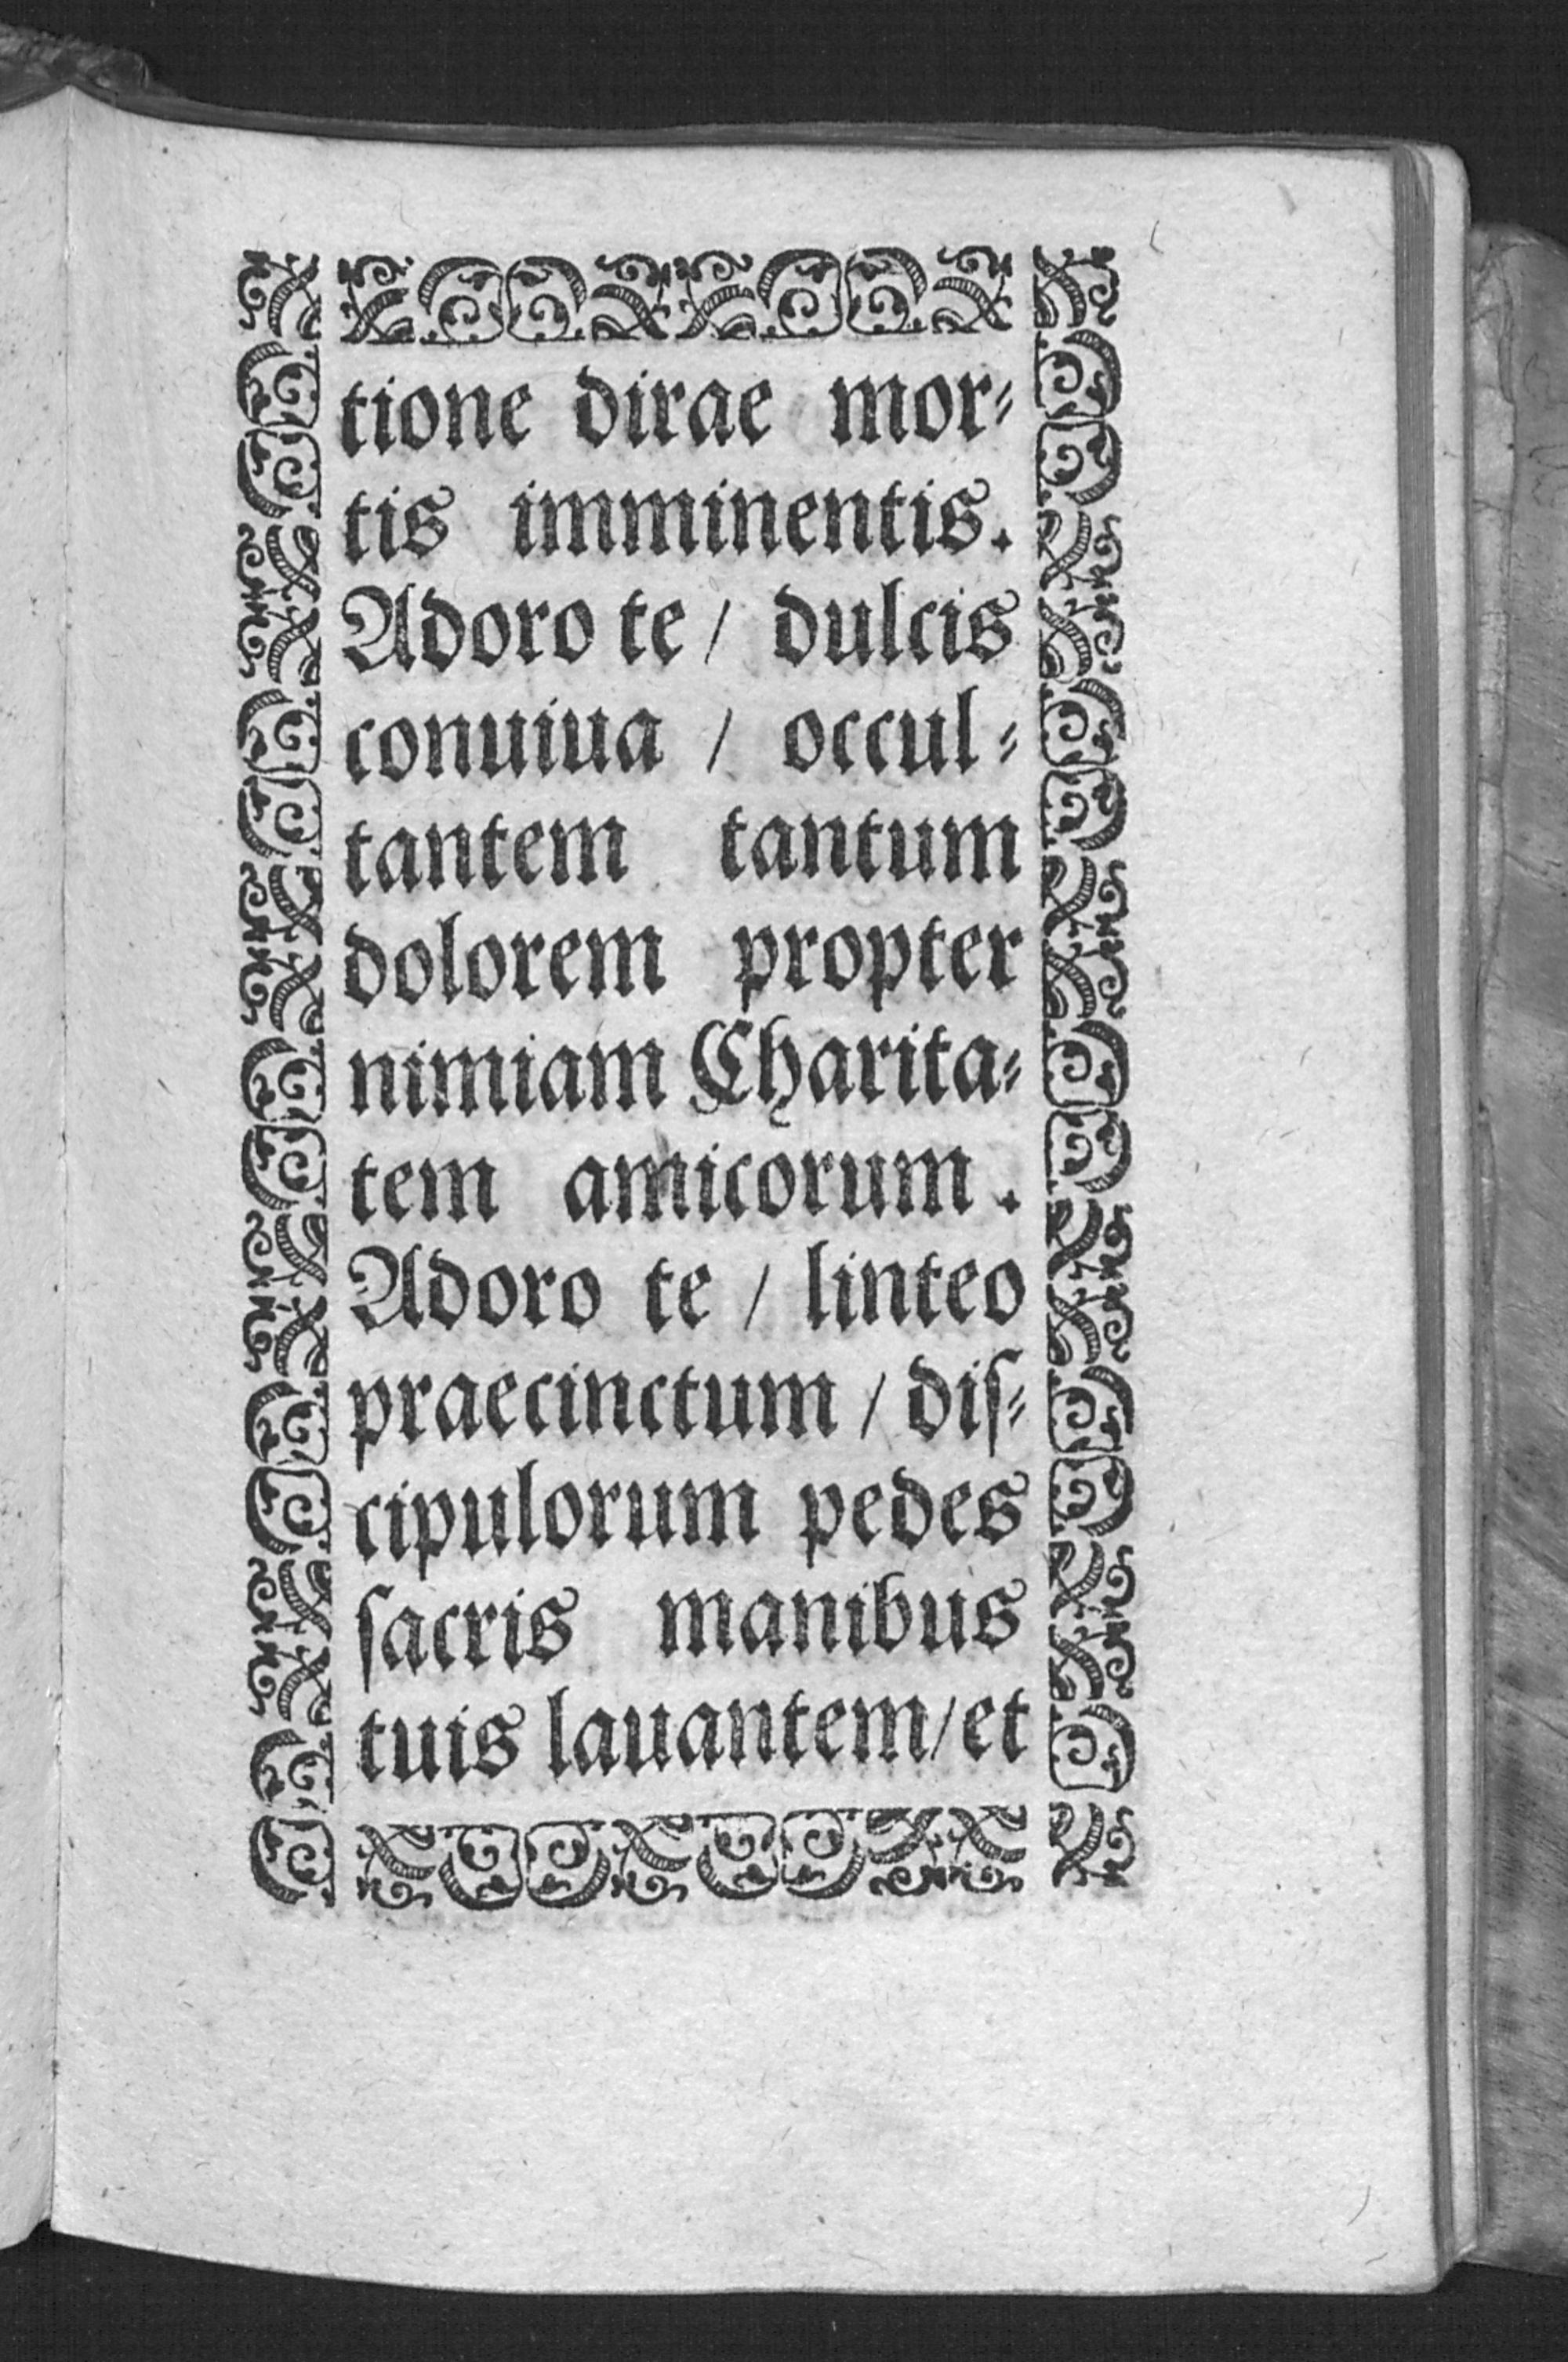 tione dirae mor⸗
tis imminentis.
Adoro te / dulcis
conuiua / occul⸗
tantem tantum
dolorem propter
nimiam Charita⸗
tem amicorum.
Adoro te / linteo
praecinctum / diſ⸗
cipulorum pedes
ſacris manibus
tuis lauantem/et